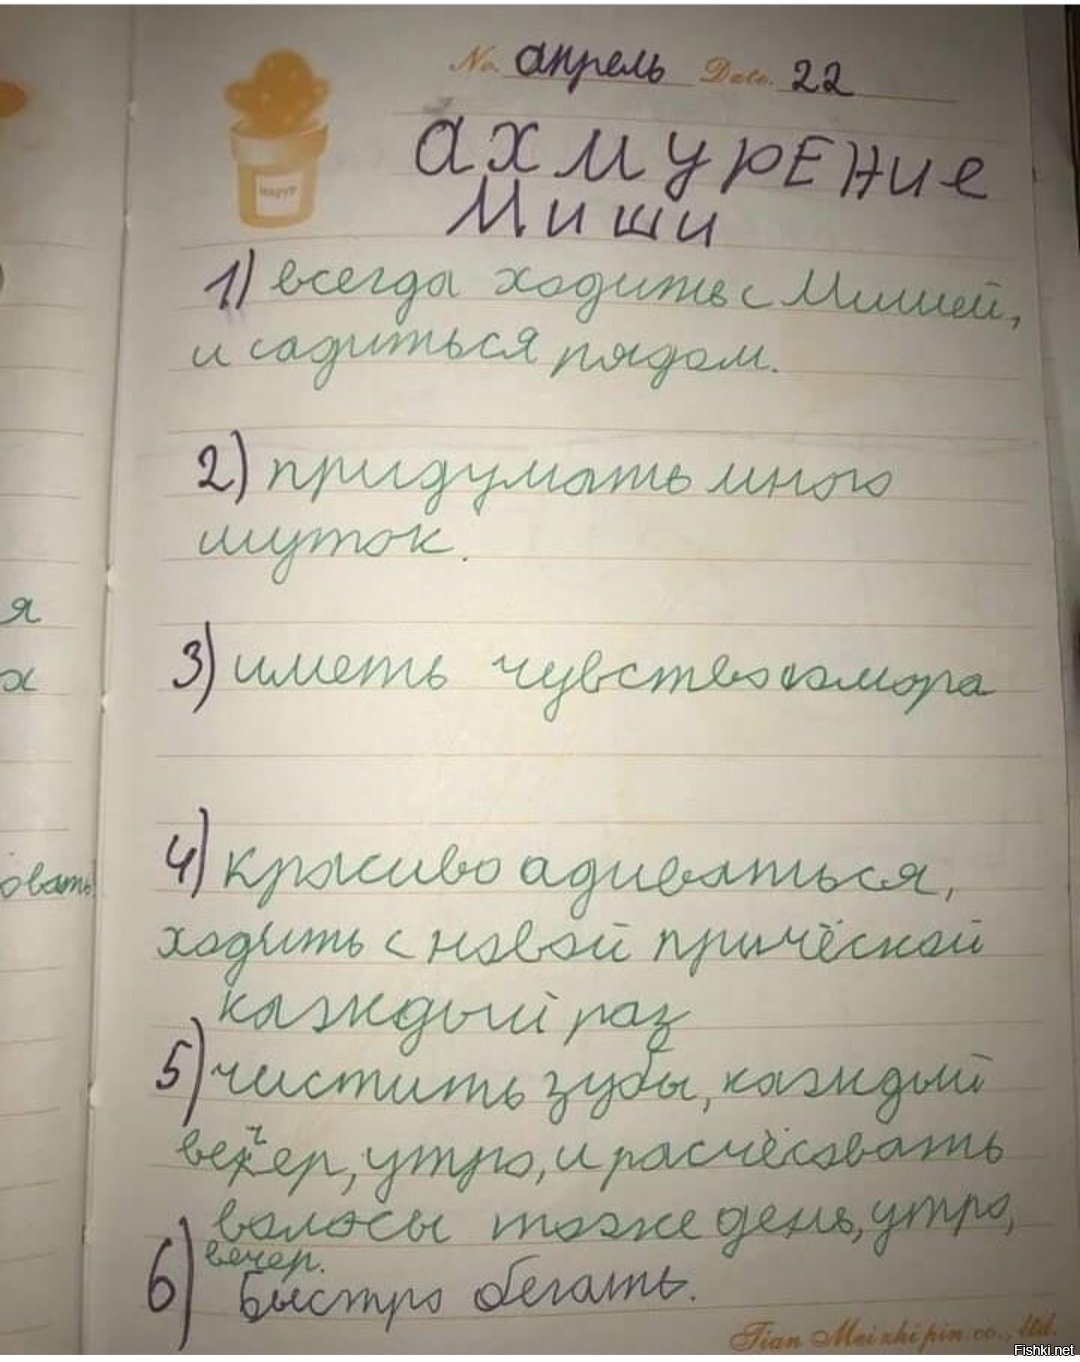 No. апрель Date. 22
ахмурение
Миши
1) всегда ходить с Мишей,
и садиться рядом.
2) придумать много
шуток.
3) иметь чувство юмора
4) красиво адиваться,
ходить с новой причёской
каждый раз
5) чистить зубы, каждый
вечер, утро, и расчёсовать
волосы тоже день, утро,
вечер.
6) Быстро бегать.
я
х
овать
Tian Meizhi pin co., ltd.
Fishki.net